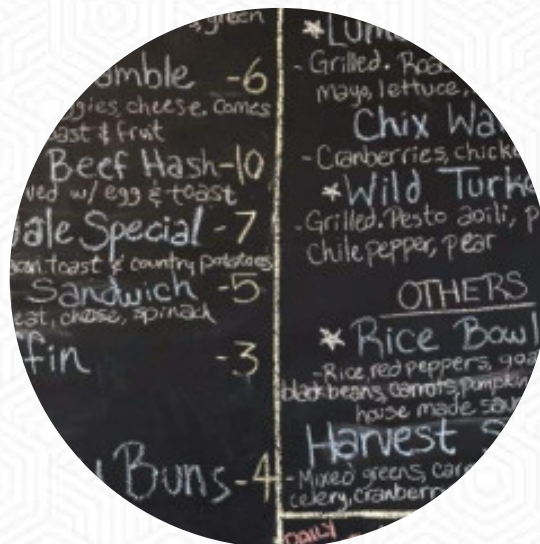 & green
amble -6
ggies, cheese. Comes
ast & fruit
Beef Hash-10
ved w/ egg & toast
ale Special -7
toast & country potatoes
Sandwich -5
eat, cheese, spinach
fin -3
Buns-4
*Lum
-Grilled. Roas
mayo, lettuce,
Chix Wa
-Cranberries, chick
*Wild Turk
-Grilled. Pesto aoili, p
chile pepper, pear
OTHERS
*Rice Bowl
-Rice, red peppers,
black beans, carrots, pumpkin
house made sau
Harvest S
-Mixed greens, carr
celery, cranberr
DAILY